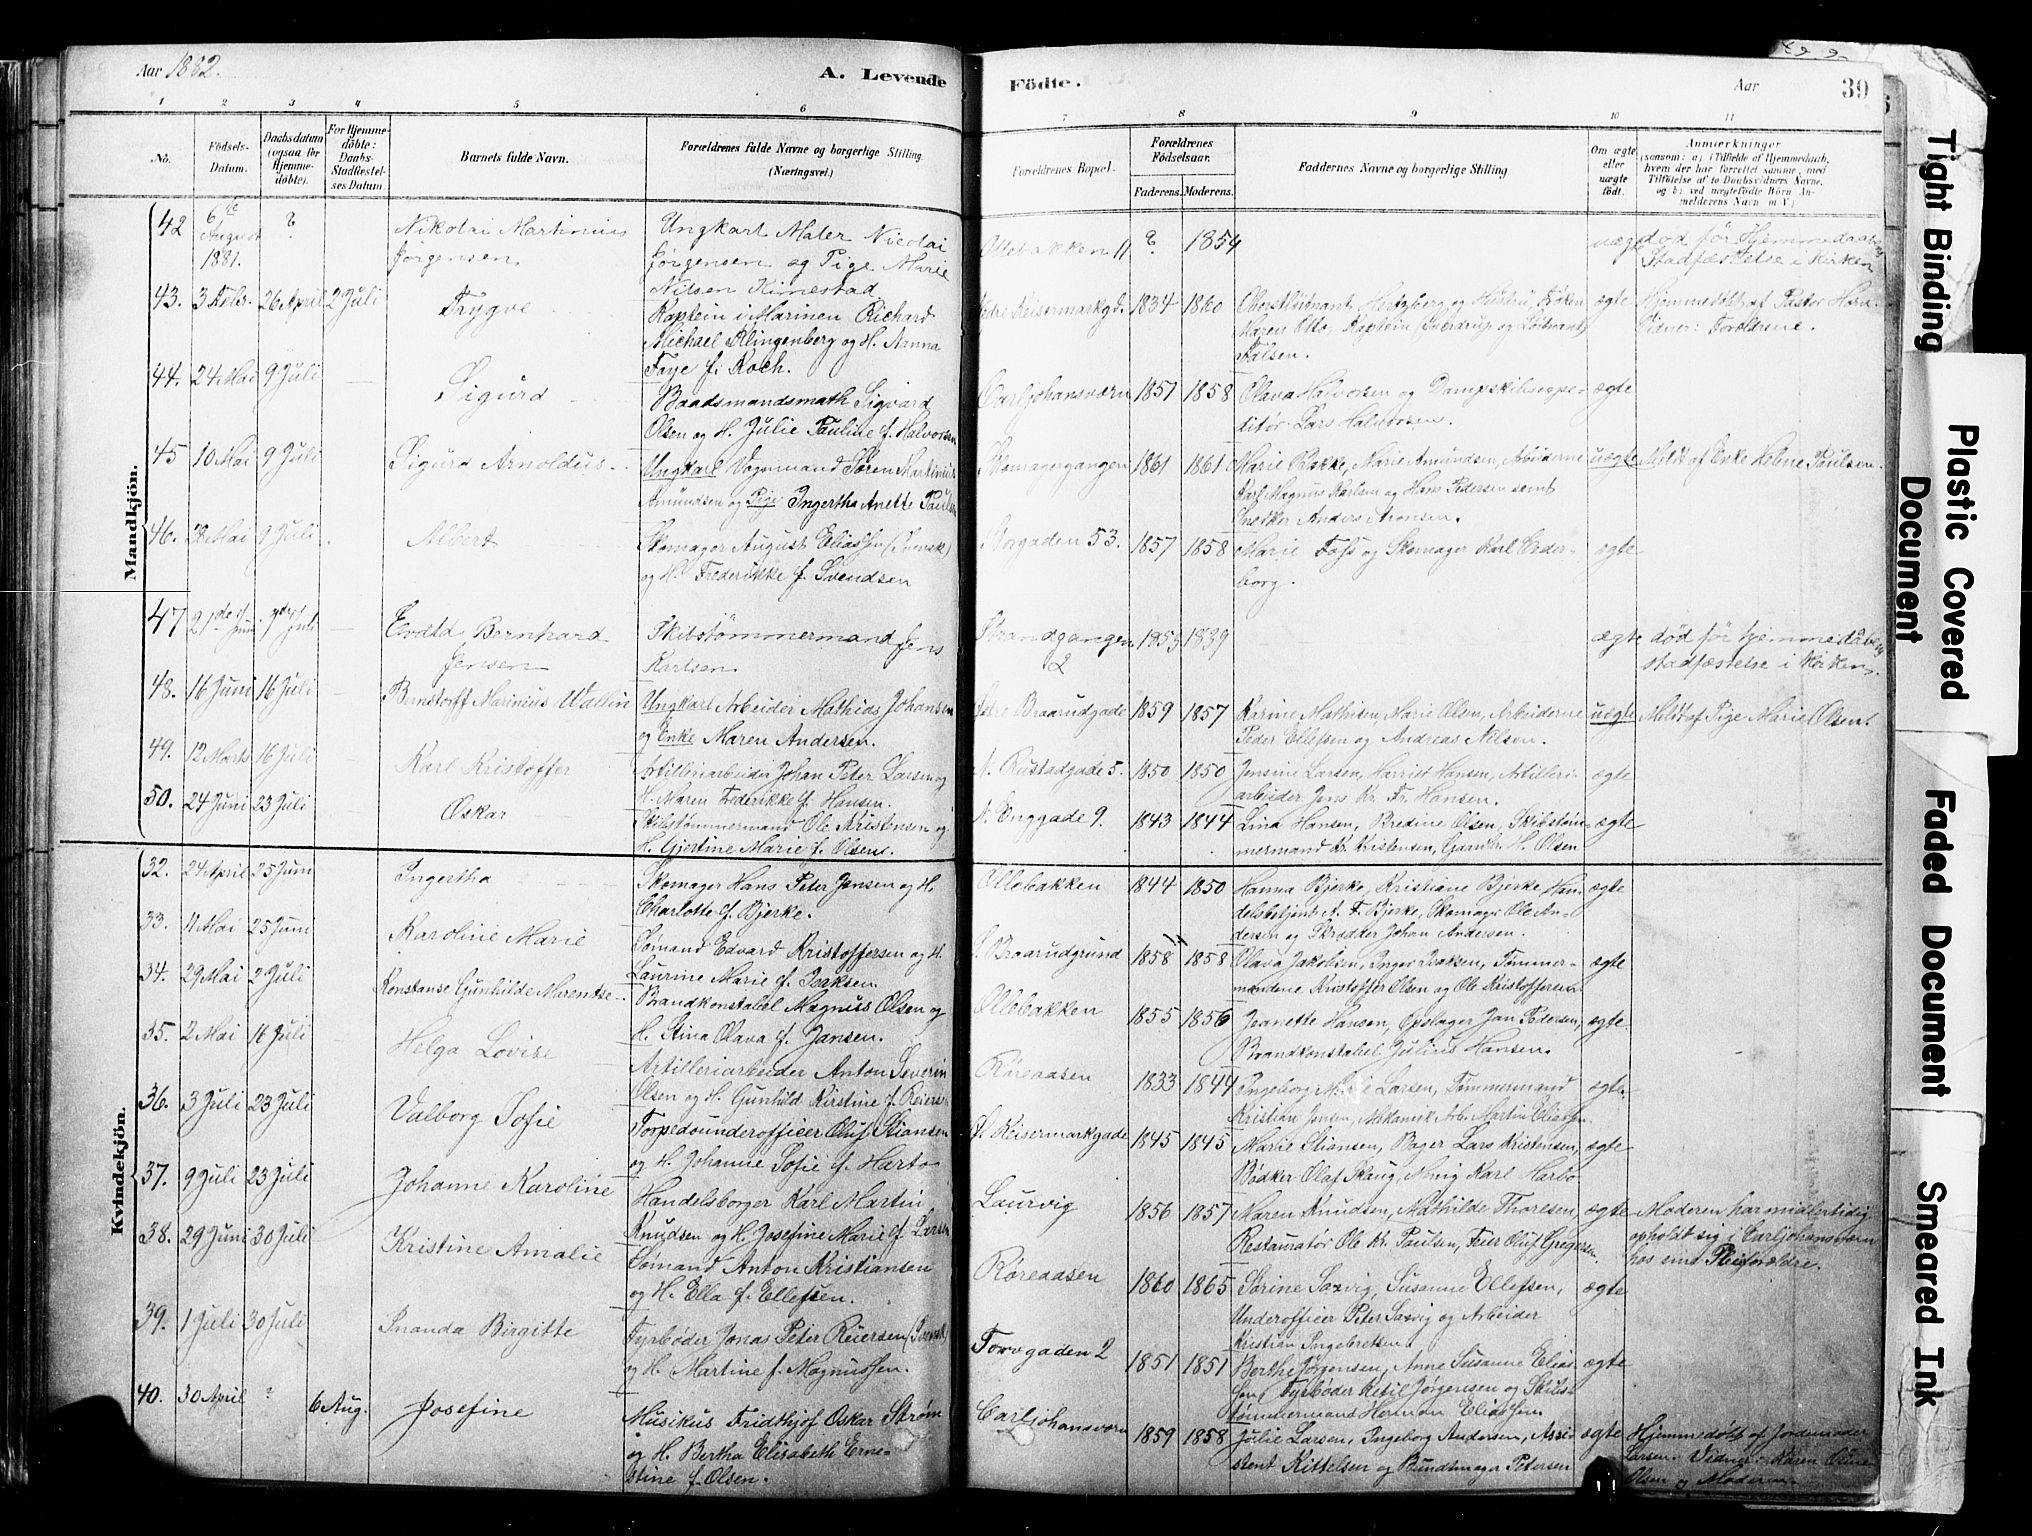 Aar 1882.
A. Levende
Födte.
Aar
39
1 2 3 4 5 6 7 8 9 10 11
No.
Födsels-Datum.
Daabsdatum (ogsaa for Hjemmedöbte).
For Hjemmedöbte: Daabs-Stadfæstelses Datum
Barnets fulde Navn.
Forældrenes fulde Navne og borgerlige Stilling. (Næringsvei.)
Forældrenes Bopæl.
Forældrenes Födselsaar.
Faderens. Moderens.
Faddernes Navne og borgerlige Stilling
Om ægte eller uægte födt.
Anmærkninger
(saasom: a) i Tilfælde af Hjemmedaab,
hvem der har forrettet samme, med
Tilföielse af to Daabsvidners Navne,
og b) ved uægtefödte Börn Anmelderens Navn m. V.)
Mandkjön.
42 6 August 1881. ? Nikolai Martinius Jørgensen Ungkarl Maler Nicolai Jørgensen og Pige Marie Nilsen Kimestad Ollebakken 11 ? 1854 uægte død før Hjemmedaabens Stadfæstelse i Kirken
43. 3 Febr. 26 April 2 Juli Trygve Kaptein i Marinen Richard Michael Klingenberg og H. Nanna Faye f. Koch. Keisermarkgd. 1834 1860 Oberstløitnant Hertzberg og Hustru, Frøken Karen Otto, Kaptein Sverdrup og Løitnant Falsen. ægte Hjemmedøbt af Pastor Horn. Vidner: Forældrene.
44. 24 Mai 9 Juli Sigurd Baadsmandsmath Sigvard Olsen og H. Julie Pauline f. Halvorsen Carljohansværn 1857 1858 Olava Halvorsen og Dampskibsexpeditør Lars Halvorsen. ægte
45 10 Mai 9 Juli Sigurd Arnoldus Ungkarl Vognmand Søren Martinius Amundsen og Pige Ingertha Anette Paulsen Skomagergangen 1861 1861 Marie Bakke, Marie Amundsen, Arbeiderne Karl Magnus Karlsen og Hans Pedersen samt Snedker Anders Aronsen. uægte Meldt af Enke Helene Paulsen.
46. 28 Mai 9 Juli Albert Skomager August Eliassen (Svensk) og H. Frederikke f. Svendsen Storgaden 53. 1857 1858 Marie Foss og Skomager Karl Cederborg. ægte
47 21de Juni 9de Juli Evald Bernhard Jensen Skibstømmermand Jens Karlsen Strandgangen 2 1853 1839 ægte død før Hjemmedaabens stadfæstelse i Kirken.
48. 16 Juni 16 Juli Berndtorff Marinius Wallin Ungkarl Arbeider Mathias Johansen og Enke Maren Andersen. Braarudgade 1859 1857 Karine Mathisen, Marie Olsen, Arbeiderne Peder Ellefsen og Andreas Nilsen. uægte Meldt af Pige Marie Olsen.
49. 12 Marts 16 Juli Karl Kristoffer Artilleriarbeider Johan Peter Larsen og H. Maren Frederikke f. Hansen. N. Rustadgade 5. 1850 1850 Jensine Larsen, Harriet Hansen, Artilleriarbeider Jens Kr. Fr. Hansen. ægte
50. 24 Juni 23 Juli Oskar Skibstømmermand Ole Kristensen og H. Gjertine Marie f. Olsen. N. Enggade 9. 1843 1844 Lina Hansen, Bredine Olsen, Skibstømmermand Kr. Kristensen, Gaardbr. M. Olsen ægte
Kvindekjön.
32. 24 April 25 Juni Ingertha Skomager Hans Peter Jensen og H. Charlotte f. Bjerke. Ollebakken 1844 1850 Hanna Bjerke, Kristiane Bjerke Handelsbetjent A. F. Bjerke, Skomager Ole Andersen og Skrædder Johan Andersen. ægte
33. 11 Mai 25 Juni Karoline Marie Sømand Edvard Kristoffersen og H. Laurine Marie f. Isaksen. Braarudgrund 1858 1858 Olava Jakobsen, Inger Isaksen, Tømmermændene Kristoffer Olsen og Ole Kristoffersen ægte
34. 29 Mai 2 Juli Konstanse Gunhilde Marentse Brandkonstabel Magnus Olsen og H. Stina Olava f. Jansen. Ollebakken 1855 1856 Jeanette Hansen, Opslager Jan Pedersen, Brandkonstabel Julius Hansen. ægte
35. 2 Mai 16 Juli Helga Lovise Artilleriarbeider Anton Severin Olsen og H. Gunhild Kirstine f. Reiers. Røreaasen 1833 1844 Ingeborg Larsen, Tømmermand Kristian Jensen, Mekanisk Arb. Martin Eliassen ægte
36. 3 Juli 23 Juli Valborg Sofie Torpedounderofficer Oluf Stiansen og H. Johanne Sofie f. Harbo Keisermarkgade 1845 1845 Marie Stiansen, Bager Lars Kristensen, Bødker Olaf Skaug, Karl Harbo ægte
37. 9 Juli 23 Juli Johanne Karoline Handelsborger Karl Martin Knudsen og H. Josefine Marie f. Larsen Laurvig 1856 1857 Maren Knudsen, Mathilde Thoresen, Restauratør Ole Kr. Paulsen, Feier Oluf Gregersen. ægte Moderen har midlertidig opholdt sig i Carljohansværn hos sine Pleiforældre.
38. 29 Juni 30 Juli Kristine Amalie Sømand Anton Kristiansen og H. Ella f. Ellefsen. Røreaasen 1860 1865 Sørine Saxvig, Susanne Ellefsen, Underofficer Peter Saxvig og Arbeider Kristian Ingebretsen. ægte
39. 1 Juli 30 Juli Inanda Birgitte Fyrbøder Jonas Peter Reiersen (Svensk) og H. Martine f. Magnussen. Torvgaden 2 1851 1851 Berthe Jørgensen, Anne Susanne Eliassen, Fyrbøder Ketil Jørgensen og Skibstømmermand Herman Eliassen. ægte
40. 30 April ? 6 Aug. Josefine Musikus Fridthjof Oskar Strøm og H. Bertha Elisabeth Ernestine f. Olsen. Carljohansværn 1859 1858 Julie Larsen, Ingeborg Andersen, Assistent Kittelsen og Bundtmager Petersen ægte Hjemmedøbt af Jordemoder Larsen. Vidner: Karen Oline Olsen og Moderen.
Tight Binding
Plastic Covered Document
Faded Document
Smeared Ink